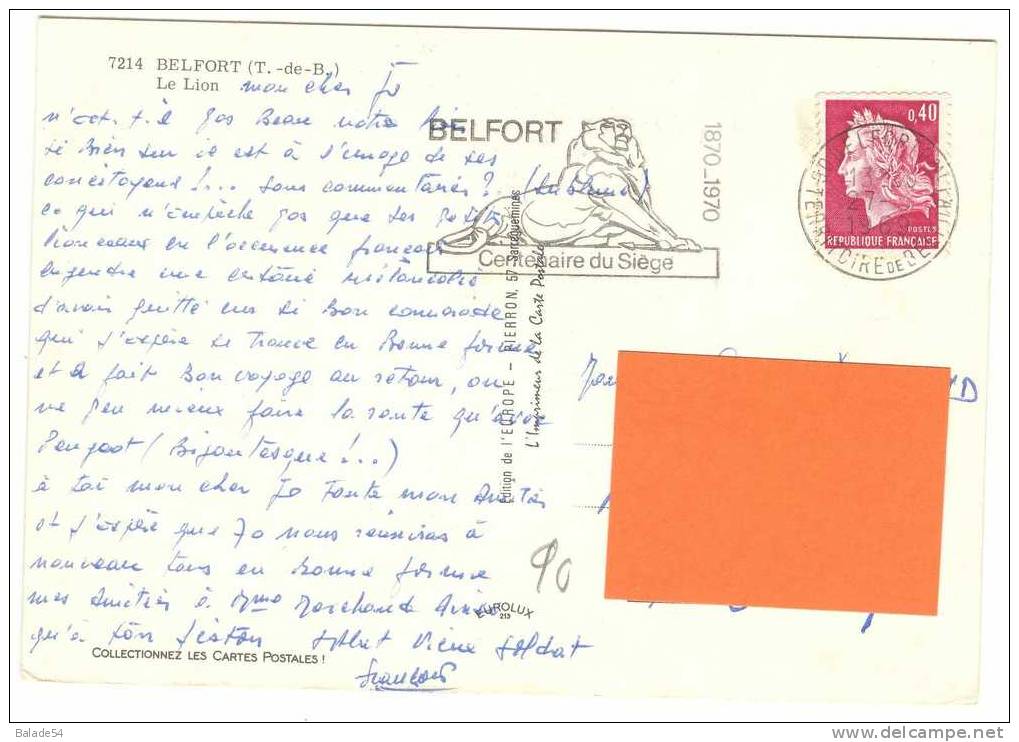 7214 BELFORT (T.-de-B.)
Le Lion
mon cher Jo
n'est-t-il pas Beau notre
si Bien sur il est à l'image de ses
concitoyens !... sans commentaires ?
ce qui n'empèche pas que ses
Lionceaux en l'occurence francois
engendre une certaine mélancolie
d'avoir quitté un si Bon camarade
que j'espère se trouve en Bonne forme
et a fait Bon voyage au retour, on
ne peu mieux faire la route qu'avec
Peugeot ( !...)
à toi mon cher Jo toute mon Amitié
et j'espère que 70 nous réunisas à
nouveau tous en Bonne forme
mes Amitiés à Mme Marchand Ainsi
qu'à ton Salut Vieux Soldat
francois
COLLECTIONNEZ LES CARTES POSTALES !
BELFORT
1870_1970
Centenaire du Siège
Edition de l'EUROPE – PIERRON, 57-Sarreguemines
L'Imprimeur de la Carte Postale
EUROLUX
213
90
0,40
POSTES
REPUBLIQUE FRANÇAISE
TERRITOIRE DE BELFORT
Balade54
www.delcampe.net